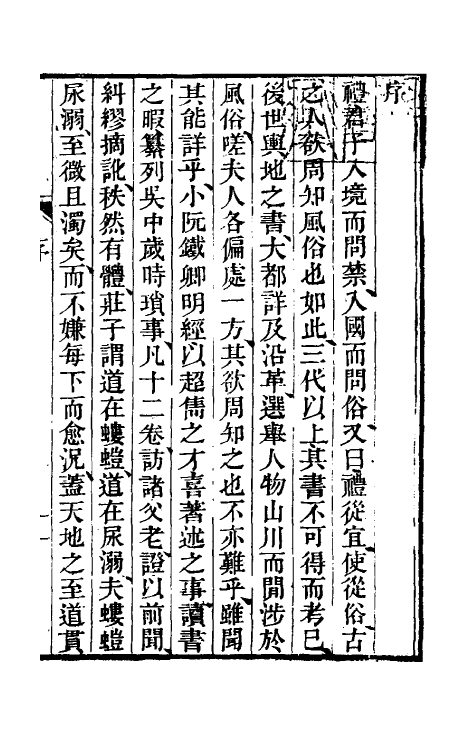 序
禮君子入境而問禁入國而問俗又曰禮從宜使從俗古
之人欲問知風俗也如此三代以上其書不可得而考已
後世輿地之書大都詳及沿革選舉人物山川而閒涉於
風俗嗟夫人各偏處一方其欲周知之也不亦難乎雖聞
其能詳乎小阮鐵卿明經以超儁之才喜著述之事讀書
之暇纂列吳中歲時瑣事凡十二卷訪諸父老證以前聞
糾繆摘訛秩然有體莊子謂道在螻螘道在尿溺夫螻螘
尿溺至微且濁矣而不嫌每下而愈況蓋天地之至道貫
序
一